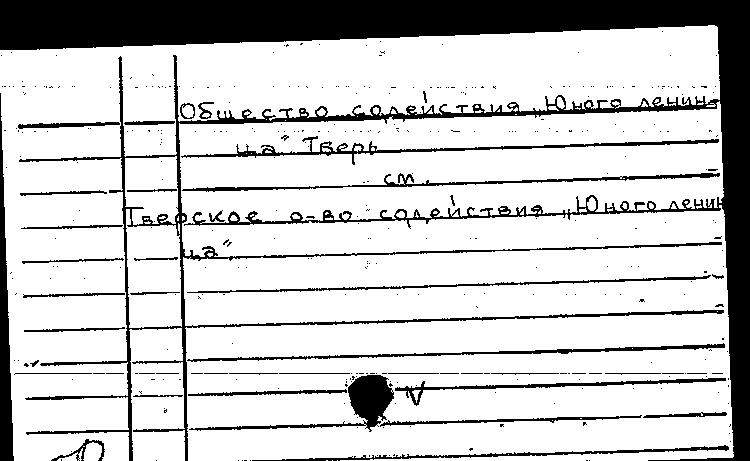 Общество содействия „Юного ленин-
ца" Тверь
см.
Тверское о-во содействия „Юного ленин
ца"
V